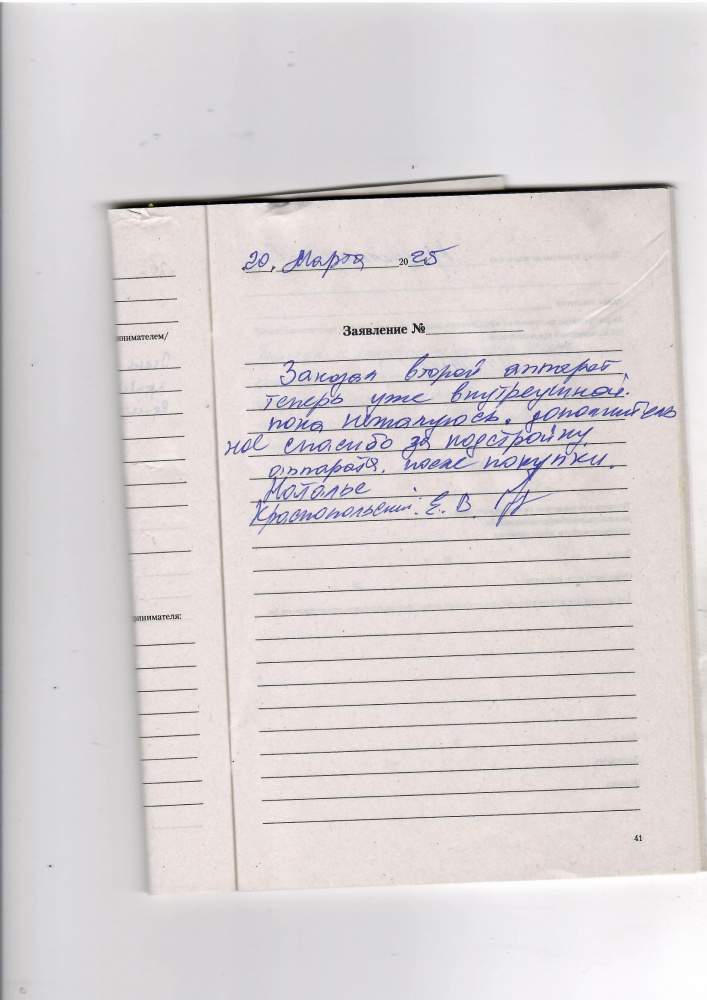 20. Марта 2025
Заявление №
инимателем/
Заказал второй аппарат,
теперь уже внутреушной.
пока не жалуюсь. дополнитель
ное спасибо за подстройку
аппарата, после покупки.
Наталье
Е. В.
ринимателя:
41